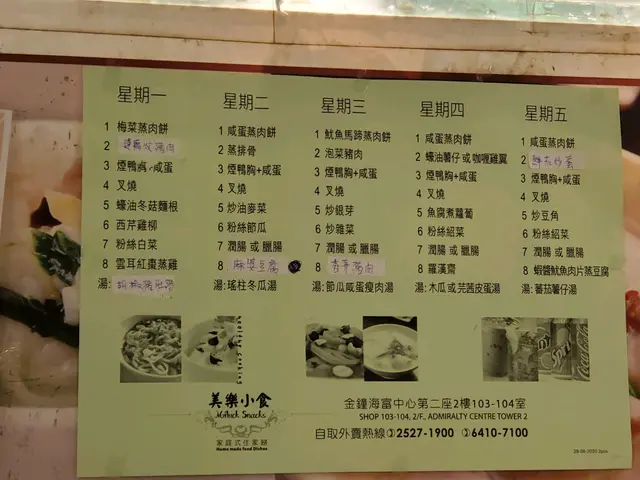 星期一
1 梅菜蒸肉餅
2
3 煙鴨 咸蛋
4 叉燒
5 蠔油冬菇麵根
6 西芹雞柳
7 粉絲白菜
8 雲耳紅棗蒸雞
湯:
星期二
1 咸蛋蒸肉餅
2 蒸排骨
3 煙鴨胸+咸蛋
4 叉燒
5 炒油麥菜
6 粉絲節瓜
7 潤腸 或 臘腸
8 麻婆豆腐
湯:瑤柱冬瓜湯
星期三
1 魷魚馬蹄蒸肉餅
2 泡菜豬肉
3 煙鴨胸+咸蛋
4 叉燒
5 炒銀芽
6 炒雜菜
7 潤腸 或 臘腸
8
湯:節瓜咸蛋瘦肉湯
星期四
1 咸蛋蒸肉餅
2 蠔油薯仔 或 咖喱雞翼
3 煙鴨胸+咸蛋
4 叉燒
5 魚腐煮蘿蔔
6 粉絲紹菜
7 潤腸 或 臘腸
8 羅漢齋
湯:木瓜 或 芫茜皮蛋湯
星期五
1 咸蛋蒸肉餅
2
3 煙鴨胸+咸蛋
4 叉燒
5 炒豆角
6 粉絲紹菜
7 潤腸 或 臘腸
8 蝦醬魷魚肉片蒸豆腐
湯:蕃茄薯仔湯
healthy cooking
美樂小食
Snacks
家庭式住家餸
Home made food Dishes
金鐘海富中心第二座2樓103-104室
SHOP 103-104, 2/F., ADMIRALTY CENTRE TOWER 2
自取外賣熱線①2527-1900 ②6410-7100